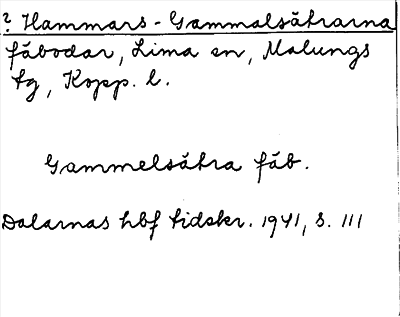 ? Hammars-Gammalsätrarna
fäbodar, Lima sn, Malungs
tg, Kopp. l.
Gammelsätra fäb.
Dalarnas hbf tidskr. 1941, s. 111